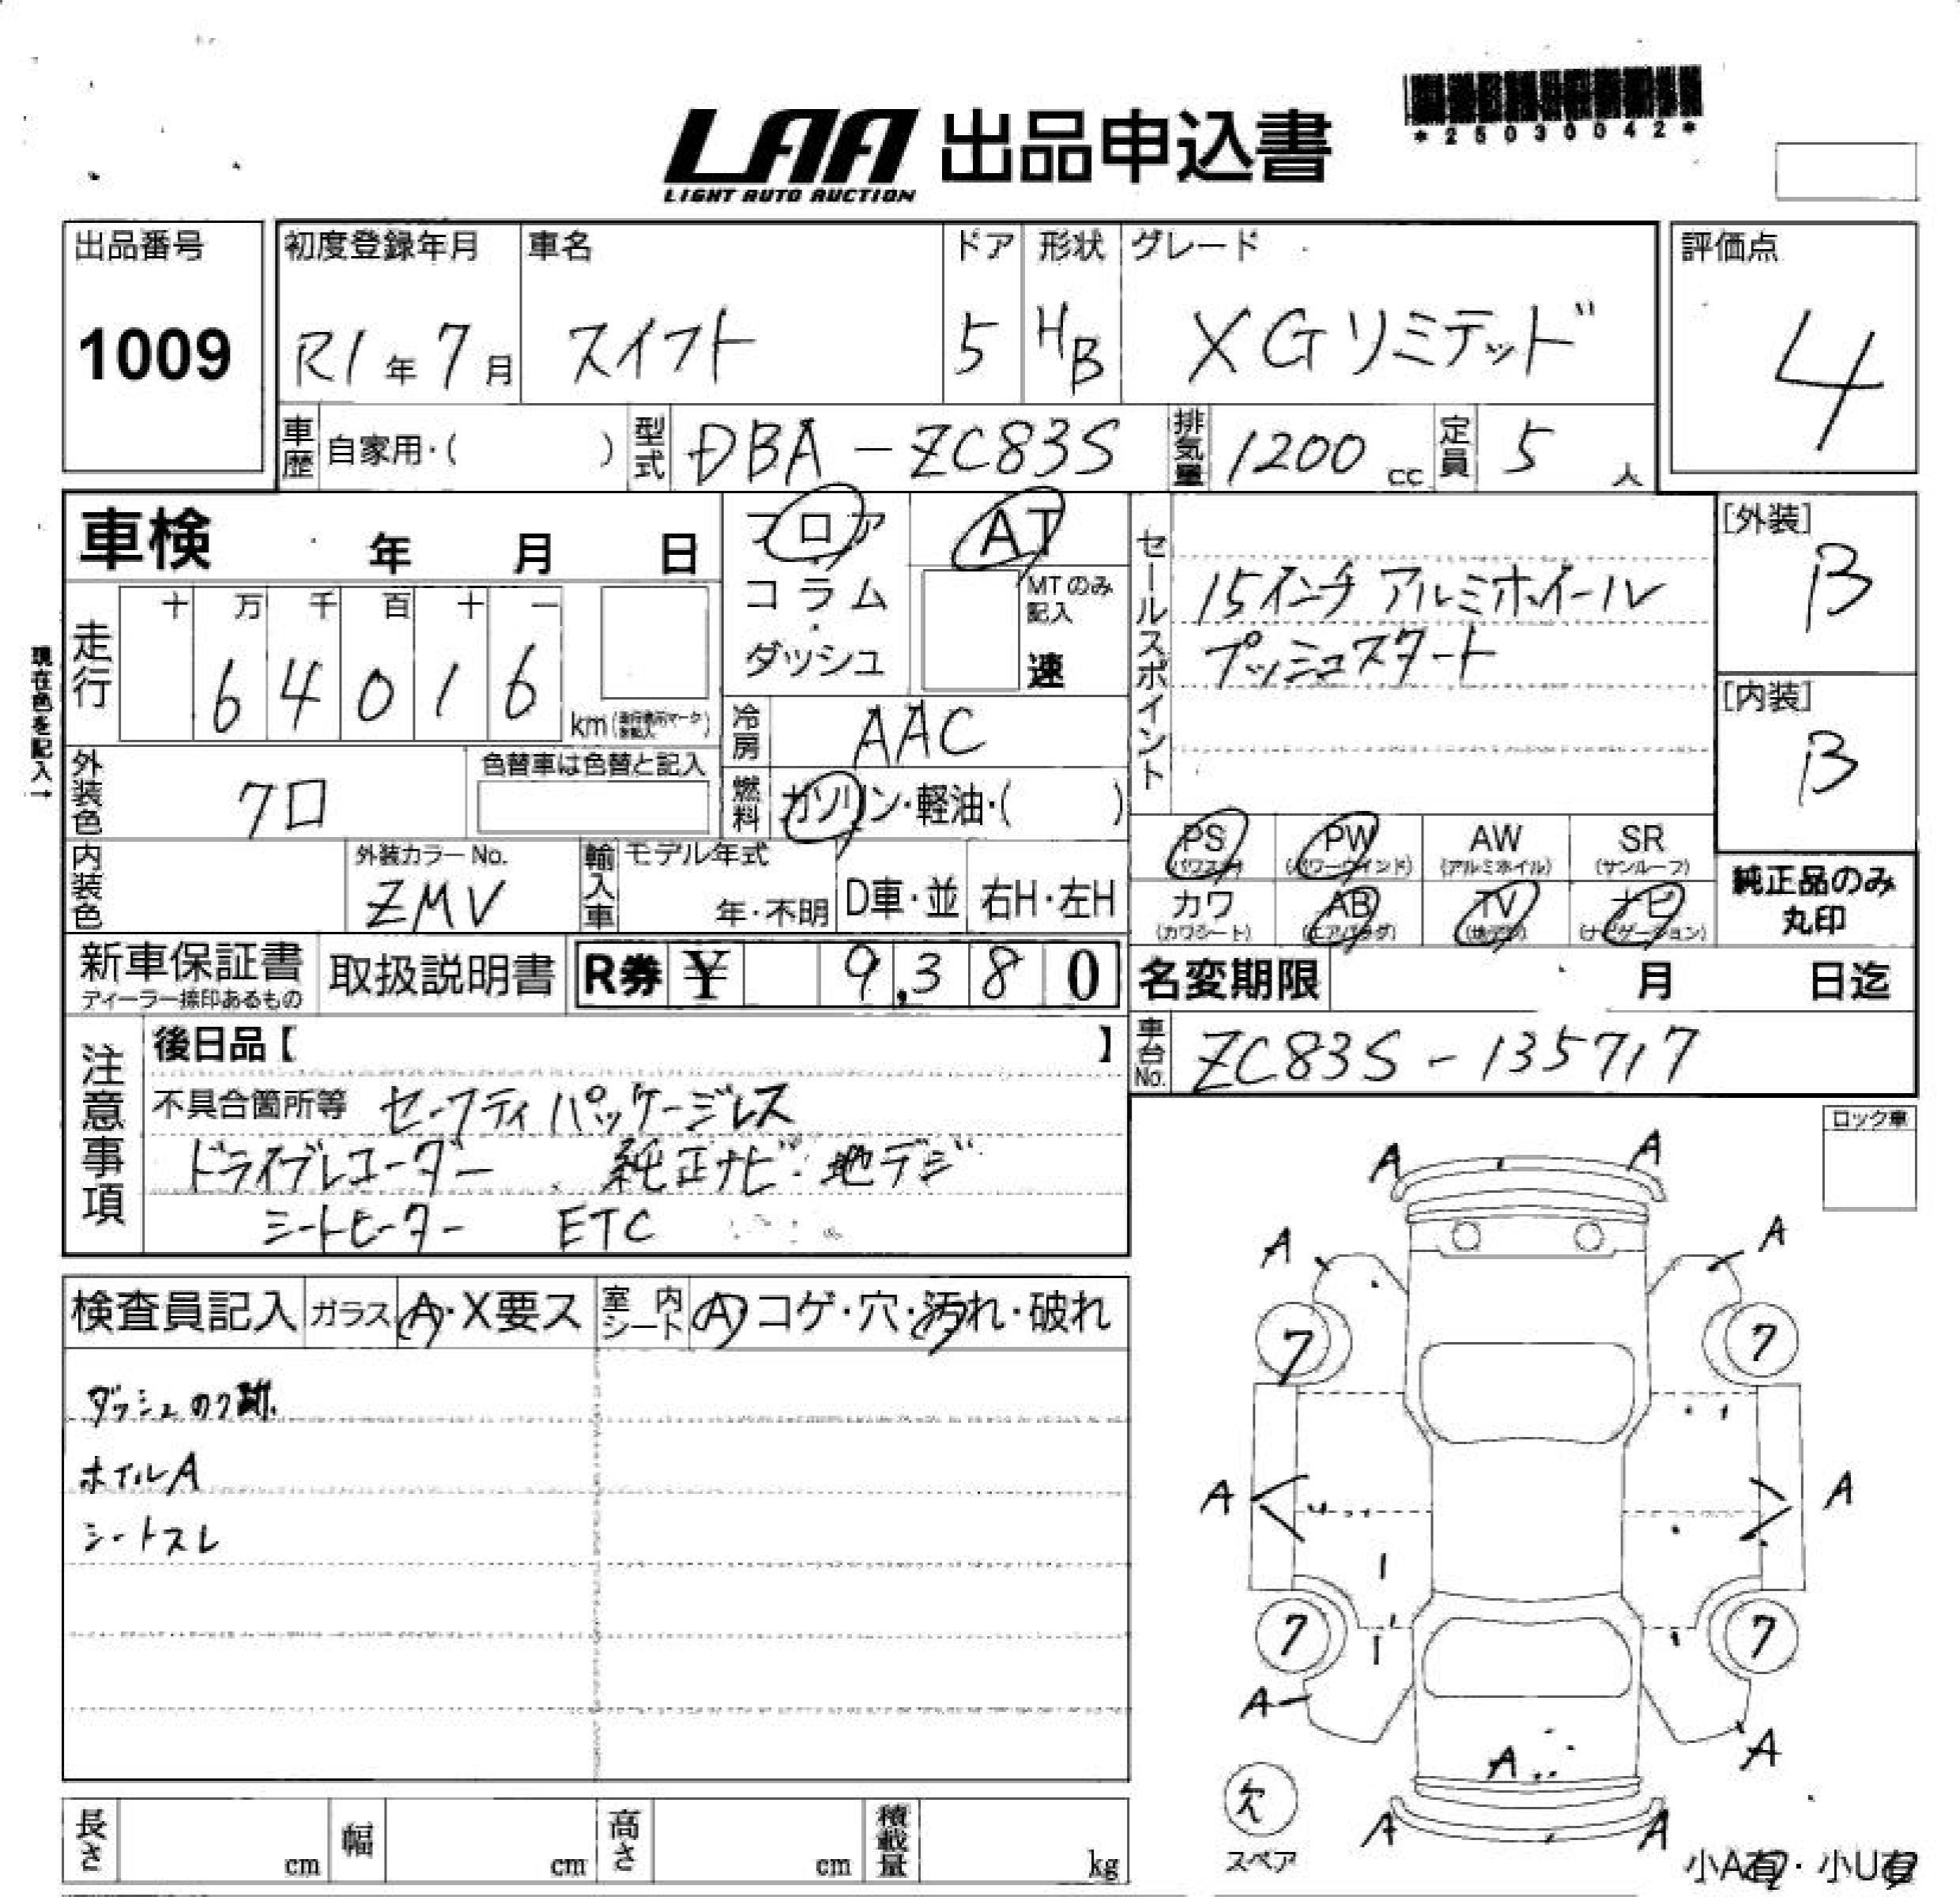 *25030042*
LAA 出品申込書
LIGHT AUTO AUCTION
出品番号 初度登録年月 車名 ドア 形状 グレード 評価点
1009 R1年7月 スイフト 5 HB XGリミテッド 4
車歴 自家用・( ) 型式 DBA-ZC83S 排気量 1200cc 定員 5人
車検 年 月 日 フロア AT
コラム・ダッシュ MTのみ記入 速
現在色を記入→
走行 十 万 千 百 十 一
64016 km
冷房 AAC
外装色 クロ 色替車は色替と記入
燃料 ガソリン・軽油・( )
セールスポイント
15インチ アルミホイール
プッシュスタート
[外装] B
[内装] B
内装色 外装カラーNo. ZMV 輸入車 モデル年式 年・不明 D車・並 右H・左H
PS (パワステ) PW (パワーウインド) AW (アルミホイル) SR (サンルーフ)
カワ (カワシート) AB (エアバッグ) TV (地デジ) ナビ (ナビゲーション)
純正品のみ丸印
新車保証書 取扱説明書 R券 ¥ 9,380
ディーラー捺印あるもの
名変期限 月 日迄
車台No. ZC83S-135717
注意事項
後日品【 】
不具合箇所等 セーフティパッケージレス
ドライブレコーダー 純正ナビ・地デジ
シートヒーター ETC
ロック車
検査員記入 ガラス A・X要ス 室内シート A・コゲ・穴・汚れ・破れ
ダッシュのり跡.
ホイルA
シートスレ
A A
A A
7 7
A A
7 7
A A
A
A A
欠
スペア
小A有・小U有
長さ cm 幅 cm 高さ cm 積載量 kg